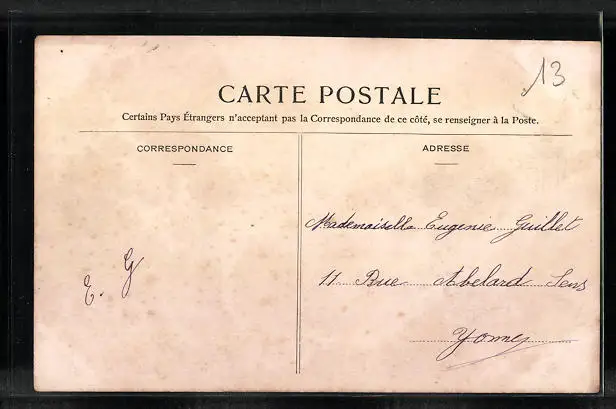 13
CARTE POSTALE
Certains Pays Étrangers n'acceptant pas la Correspondance de ce côté, se renseigner à la Poste.
CORRESPONDANCE
ADRESSE
Mademoiselle Eugenie Guillet
11 Rue Abelard Sens
Yonne
E. G